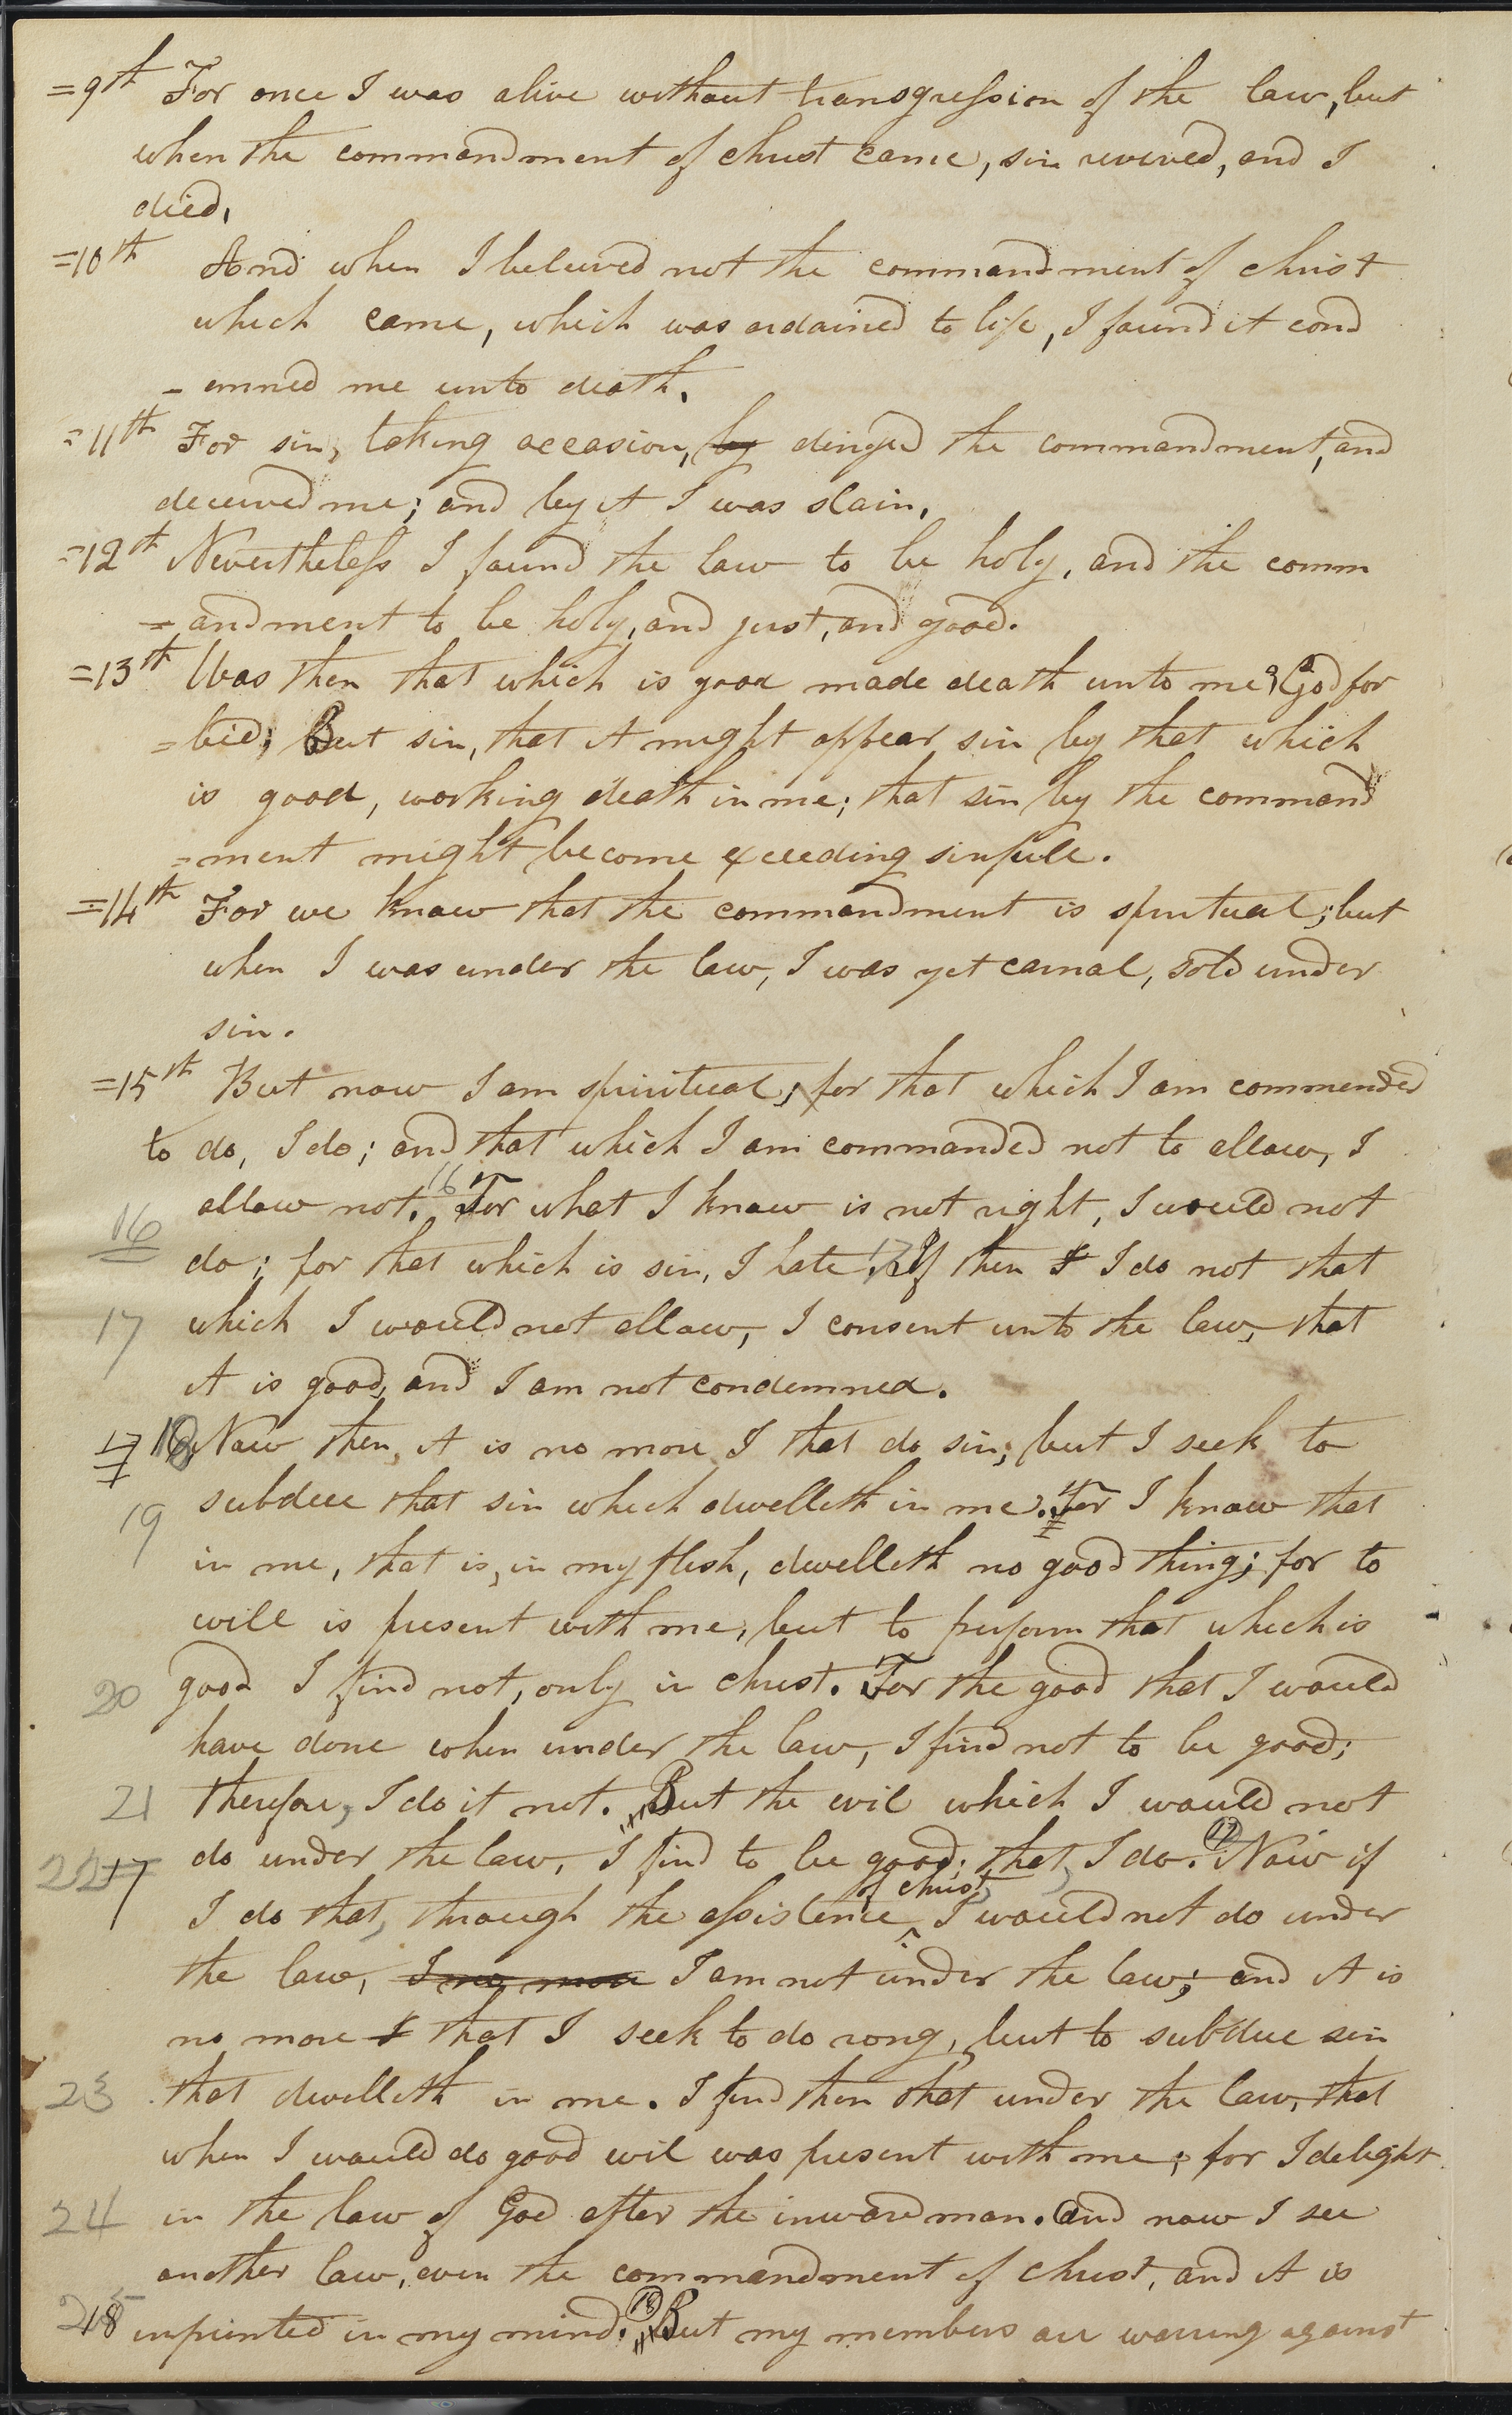 =9th For once I was alive without transgression of the law, but
when the commandment of christ came, sin revived, and I
died,
=10th And when I beleived not the commandment of christ
which came, which was ordained to life, I found it cond
- emned me unto death.
=11th For sin, taking occasion, by dinyed the commandment, and
deceived me; and by it I was slain,
=12th Nevertheless I found the law to be holy, and the comm
=andment to be holy, and just, and good.
=13th Was then that which is good made death unto me? God for
=bid; But sin, that it might appear sin by that which
is good, working death in me; that sin by the command
=ment might become exceeding sinfull.
=14th For we know that the commandment is spiritual; but
when I was under the law, I was yet carnal, sold under
sin.
=15th But now I am spiritual; for that which I am commended
to do, I do; and that which I am commanded not to allow, I
16 allow not. 16 For what I know is not right, I would not
do; for that which is sin, I hate. 17 If then I I do not that
17 which I would not allow, I consent unto the law, that
it is good, and I am not condemned.
17 18 Now then, it is no more I that do sin; but I seek to
subdue that sin which dwelleth in me. For I know that
19 in me, that is, in my flesh, dwelleth no good thing; for to
will is present with me, but to perform that which is
20 good I find not, only in christ. For the good that I would
have done when under the law, I find not to be good;
21 therefore, I do it not. But the evil which I would not
22 17 do under the law, I find to be good; that, I do. 17 Now if
of christ,
I do that, through the assistence ^ I would not do under
the law, I no more I am not under the law; and it is
no more I that I seek to do rong, but to subdue sin
23 that dwelleth in me. I find then that under the law, that
when I would do good evil was present with me; for I delight
24 in the law of God after the inward man. And now I see
another law, even the commandment of christ, and it is
25 18 inprinted in my mind. 18 But my members are warring against